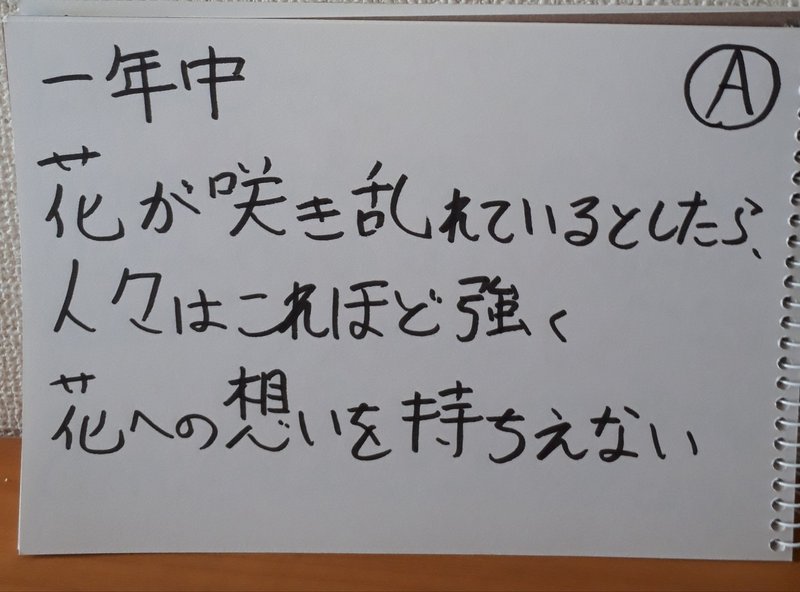 一年中
Ⓐ
花が咲き乱れているとしたら、
人々はこれほど強く
花への想いを持ちえない